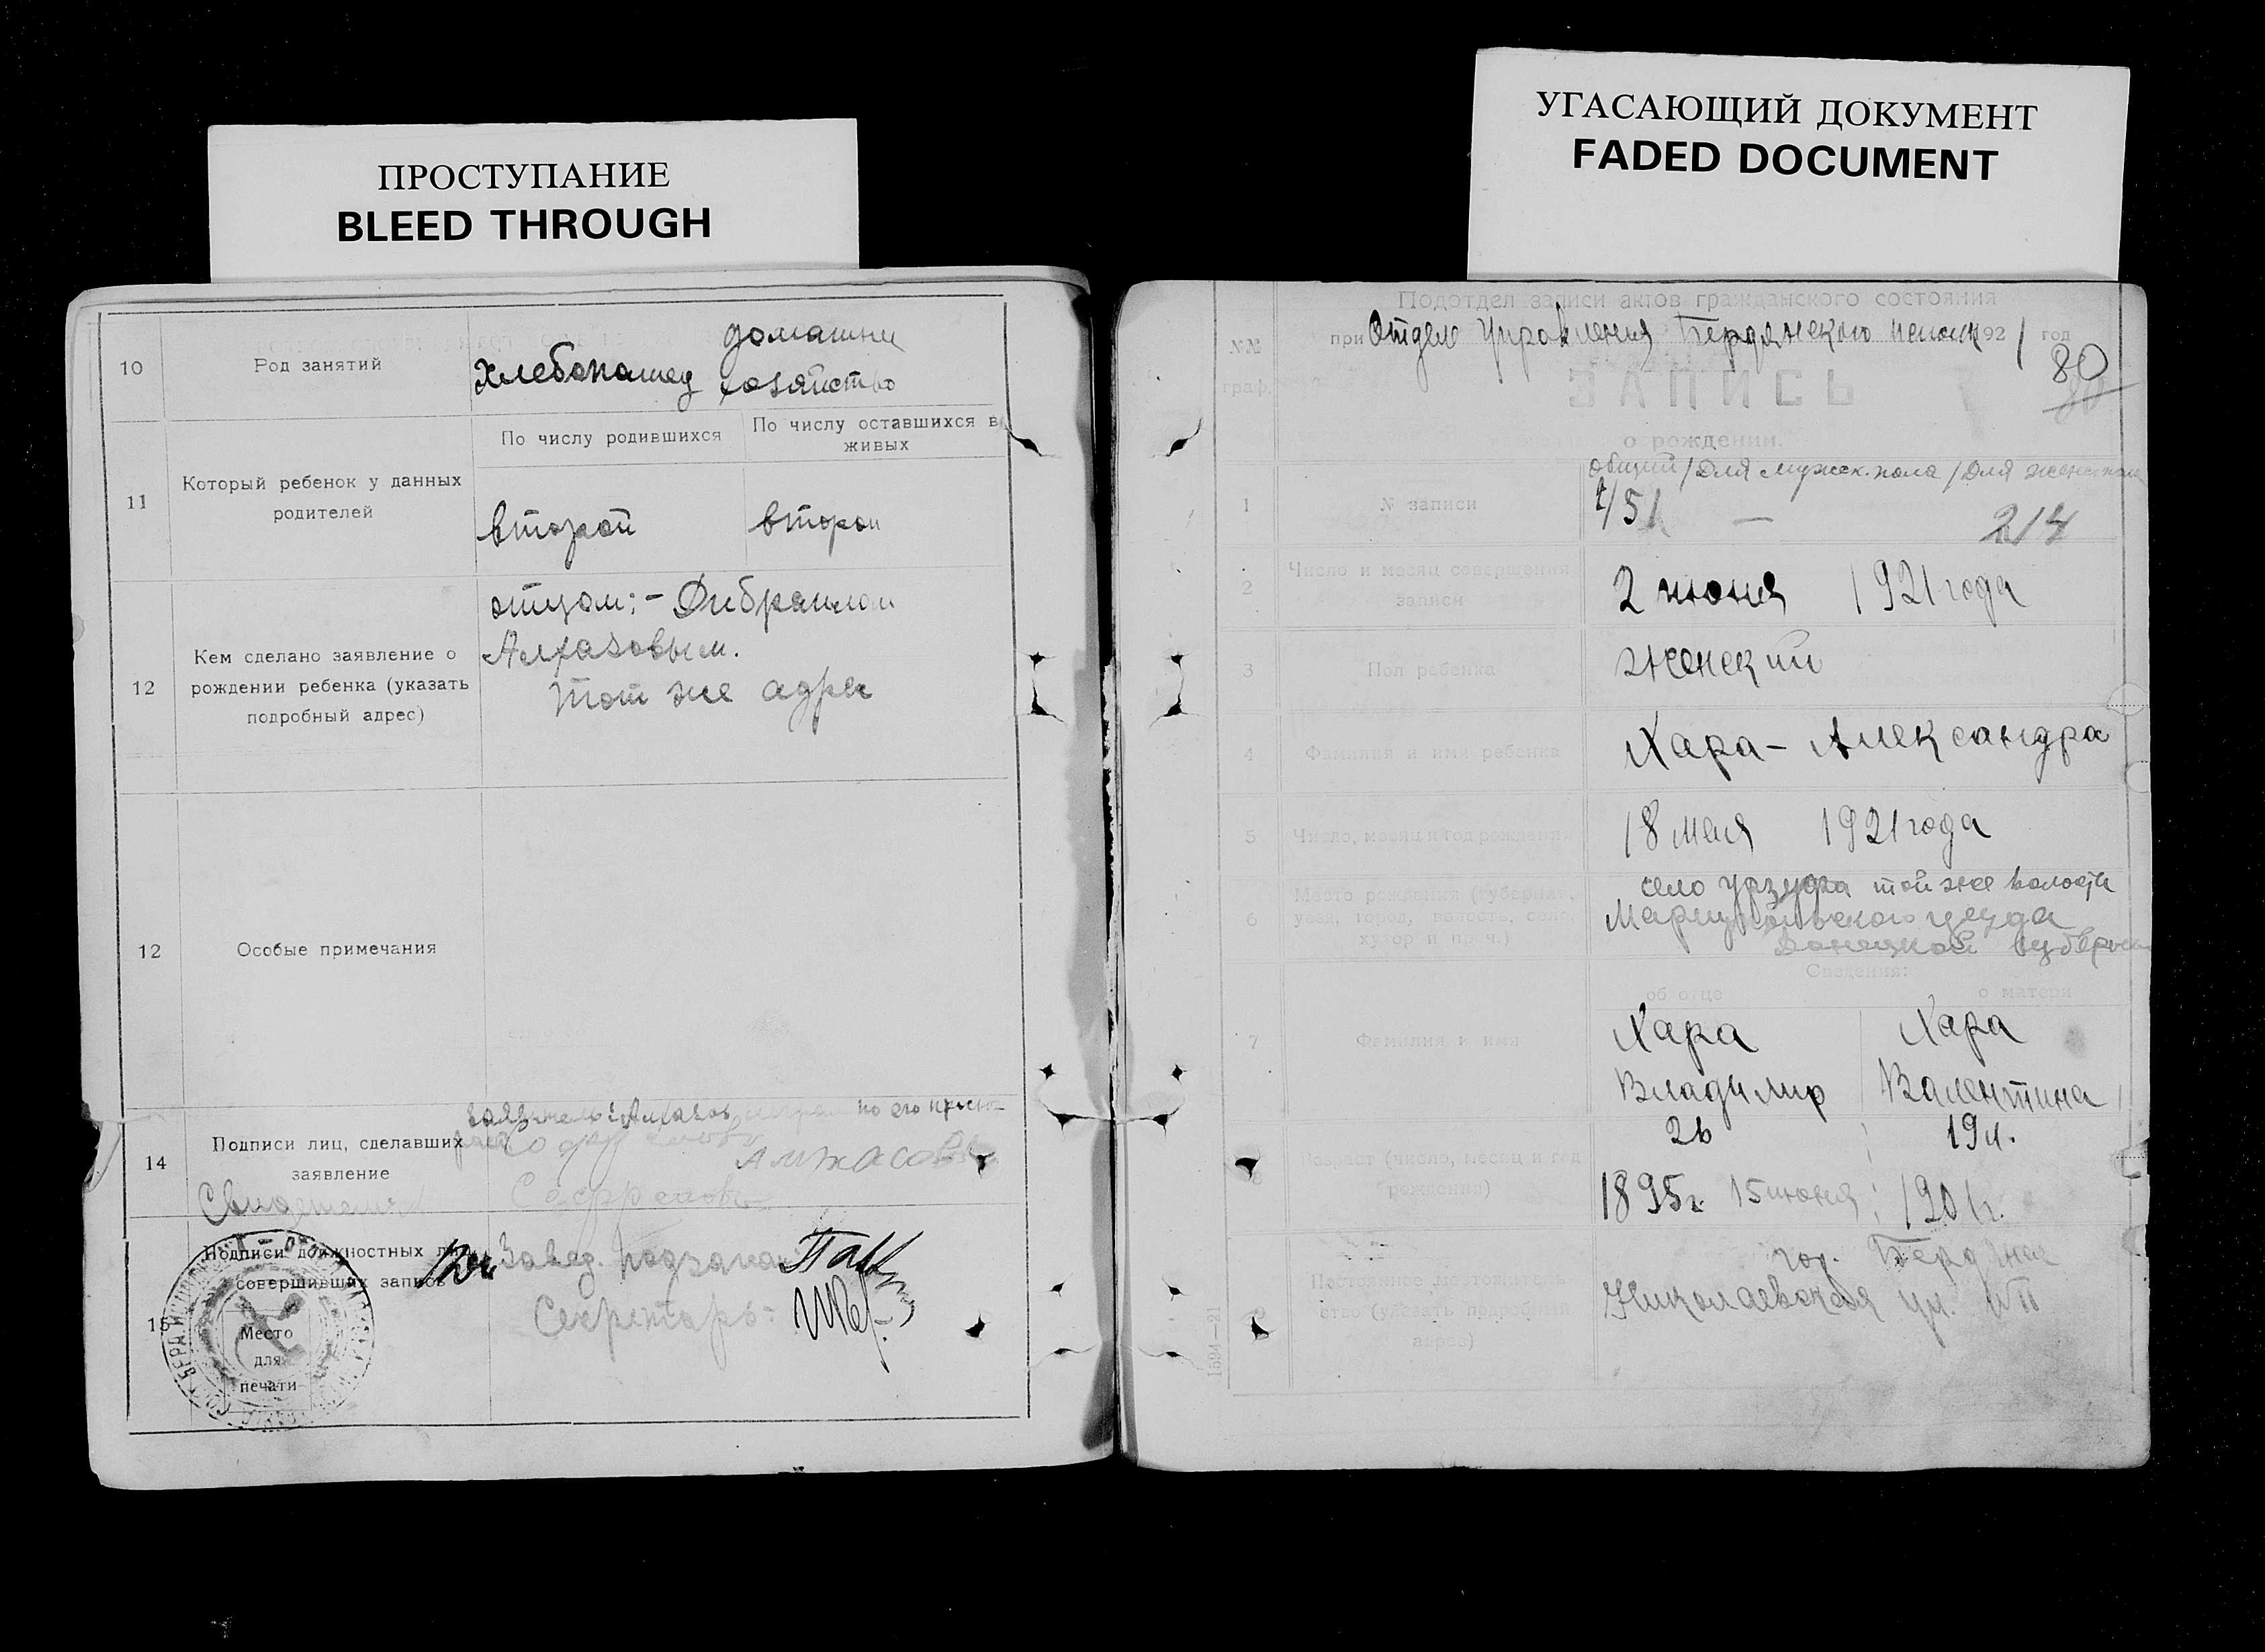 ПРОСТУПАНИЕ
BLEED THROUGH
УГАСАЮЩИЙ ДОКУМЕНТ
FADED DOCUMENT
10
Род занятий
домашни
Хлебопашец хозяйство
11
Который ребенок у данных
родителей
По числу родившихся
По числу оставшихся в
живых
второй
второй
12
Кем сделано заявление о
рождении ребенка (указать
подробный адрес)
отцом:-
тот же адрес
12
Особые примечания
14
Подписи лиц, сделавших
заявление
по его
15
Подписи должностных
совершивших запись
Место
для
печати
Завед.
Секретарь:
Подотдел записи актов гражданского состояния
№№
граф.
при Отделе Управления Бердянского 1921 год
80
ЗАПИСЬ
о рождении.
1
№ записи
общий / Для мужск. пола / Для женск.
451 — 214
2
Число и месяц совершения
записи
2 июня 1921 года
3
Пол ребенка
женский
4
Фамилия и имя ребенка
Хара - Александра
5
Число, месяц и год рождения
18 мая 1921 года
6
Место рождения (губерния,
уезд, город, волость, село,
хутор и проч.)
село Урзуфа той же волости
Мариупольского уезда
Донецкой губернии
Сведения:
об отце
о матери
7
Фамилия и имя
Хара
Владимир
Хара
Валентина
8
Возраст (число, месяц и год
рождения)
26
19 л.
1895 г. 15 июня
1901 г.
9
Постоянное
(указать
адрес)
гор.
Николаевская ул.
1594—21